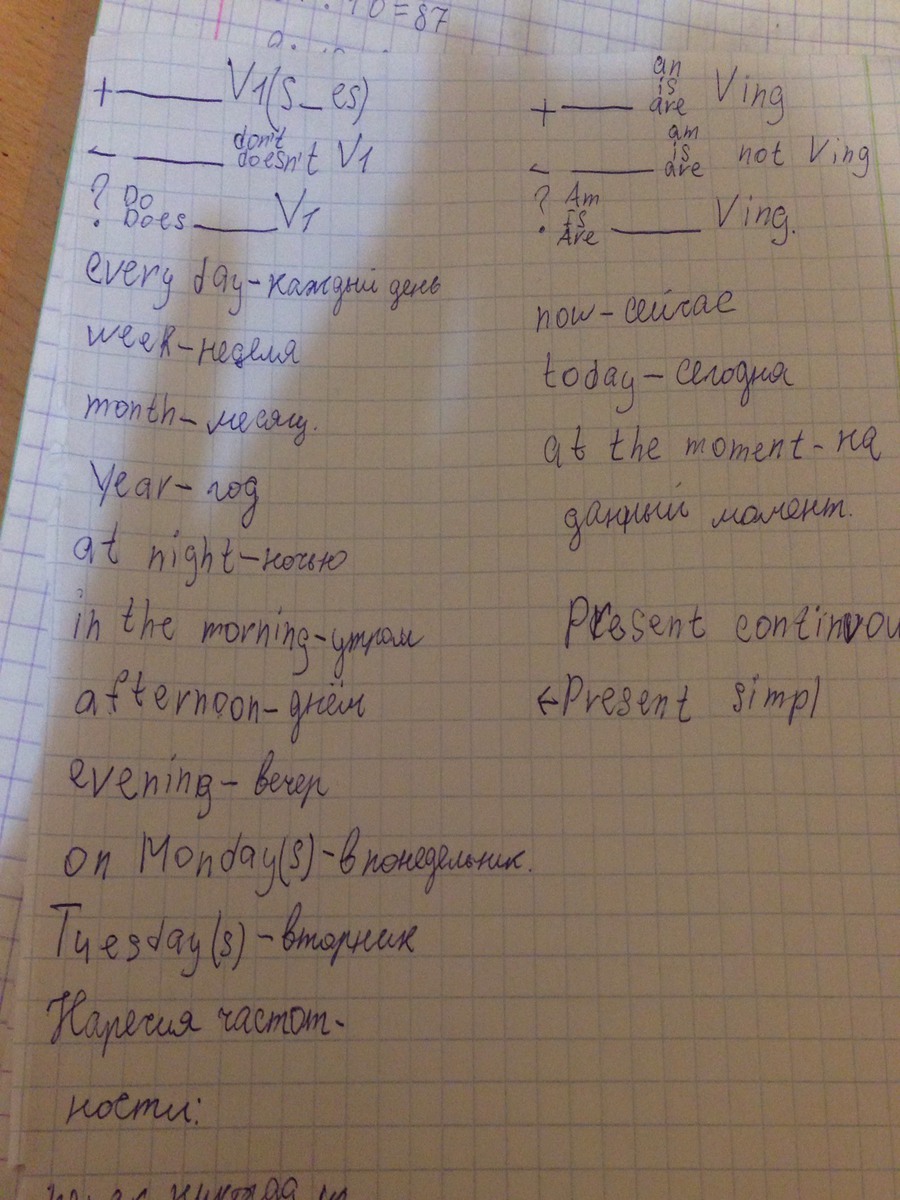 10=87
+ ____ V1(s_es)
- ____ don't doesn't V1
? Do Does ____ V1
every day-каждый день
week-неделя
month-месяц.
Year-год
at night-ночью
in the morning-утром
afternoon-днём
evening-вечер
on Monday(s)-в понедельник.
Tuesday(s)-вторник
Наречия частот-
ности:
никогда
+ ____ an is are Ving
- ____ am is are not Ving
? Am Is Are ____ Ving.
now-сейчас
today-сегодня
at the moment-на
данный момент.
Present continuou
←Present simpl